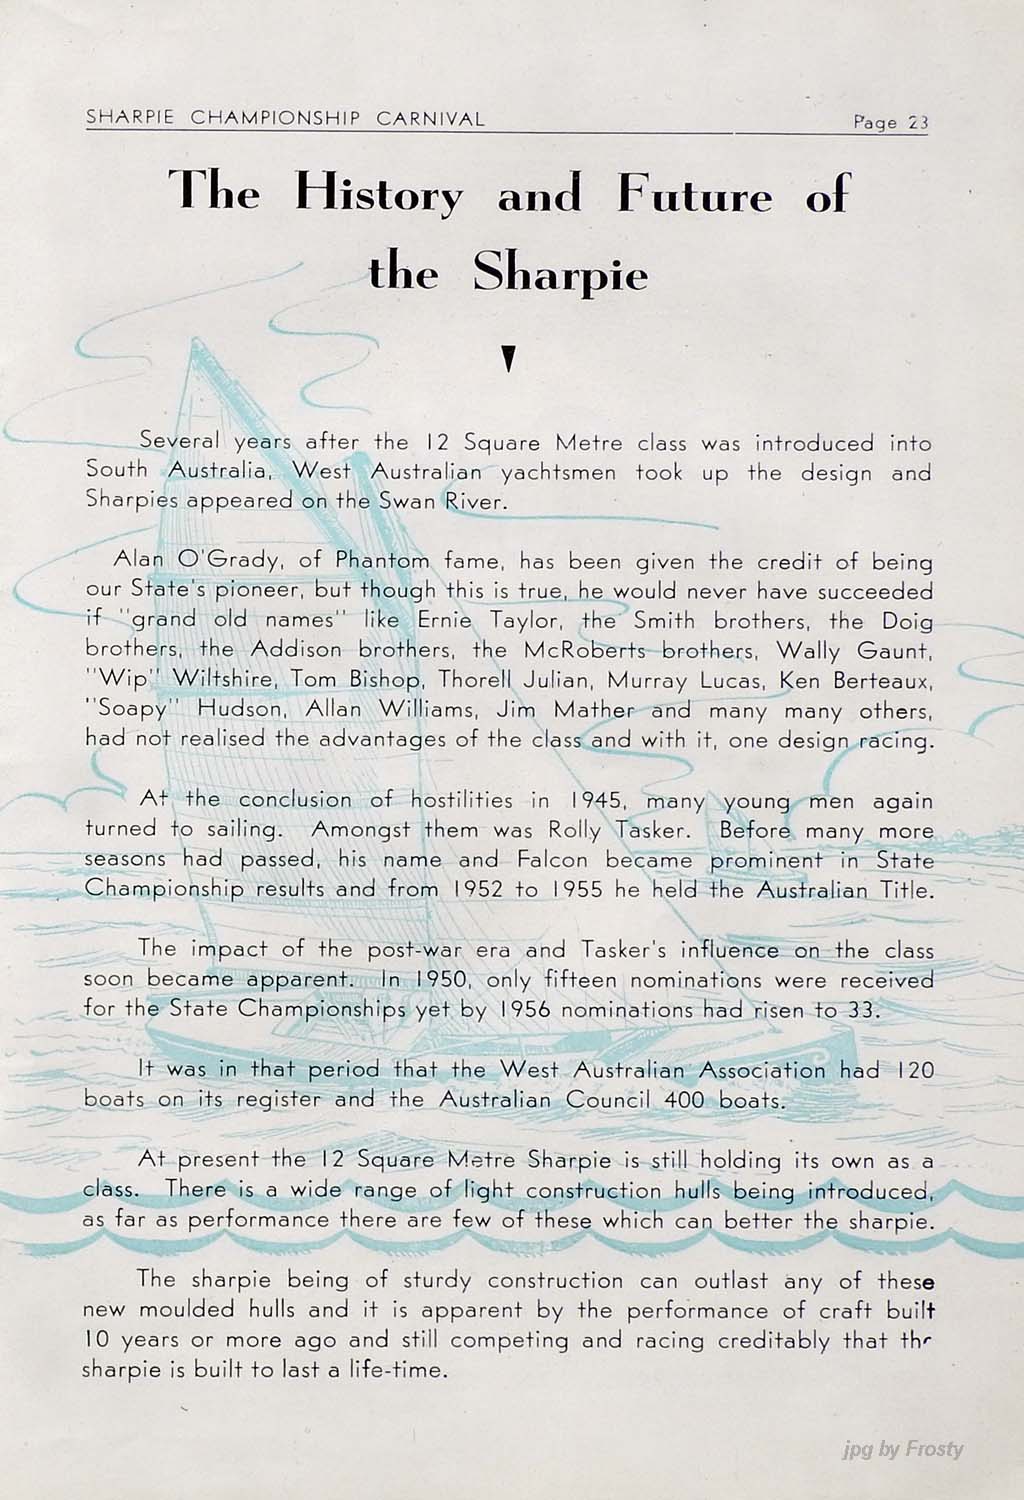 SHARPIE CHAMPIONSHIP CARNIVAL Page 23
The History and Future of
the Sharpie
Several years after the 12 Square Metre class was introduced into
South Australia, West Australian yachtsmen took up the design and
Sharpies appeared on the Swan River.
Alan O'Grady, of Phantom fame, has been given the credit of being
our State's pioneer, but though this is true, he would never have succeeded
if "grand old names" like Ernie Taylor, the Smith brothers, the Doig
brothers, the Addison brothers, the McRoberts brothers, Wally Gaunt,
"Wip" Wiltshire, Tom Bishop, Thorell Julian, Murray Lucas, Ken Berteaux,
"Soapy" Hudson, Allan Williams, Jim Mather and many many others,
had not realised the advantages of the class and with it, one design racing.
At the conclusion of hostilities in 1945, many young men again
turned to sailing. Amongst them was Rolly Tasker. Before many more
seasons had passed, his name and Falcon became prominent in State
Championship results and from 1952 to 1955 he held the Australian Title.
The impact of the post-war era and Tasker's influence on the class
soon became apparent. In 1950, only fifteen nominations were received
for the State Championships yet by 1956 nominations had risen to 33.
It was in that period that the West Australian Association had 120
boats on its register and the Australian Council 400 boats.
At present the 12 Square Metre Sharpie is still holding its own as a
class. There is a wide range of light construction hulls being introduced,
as far as performance there are few of these which can better the sharpie.
The sharpie being of sturdy construction can outlast any of these
new moulded hulls and it is apparent by the performance of craft built
10 years or more ago and still competing and racing creditably that the
sharpie is built to last a life-time.
jpg by Frosty